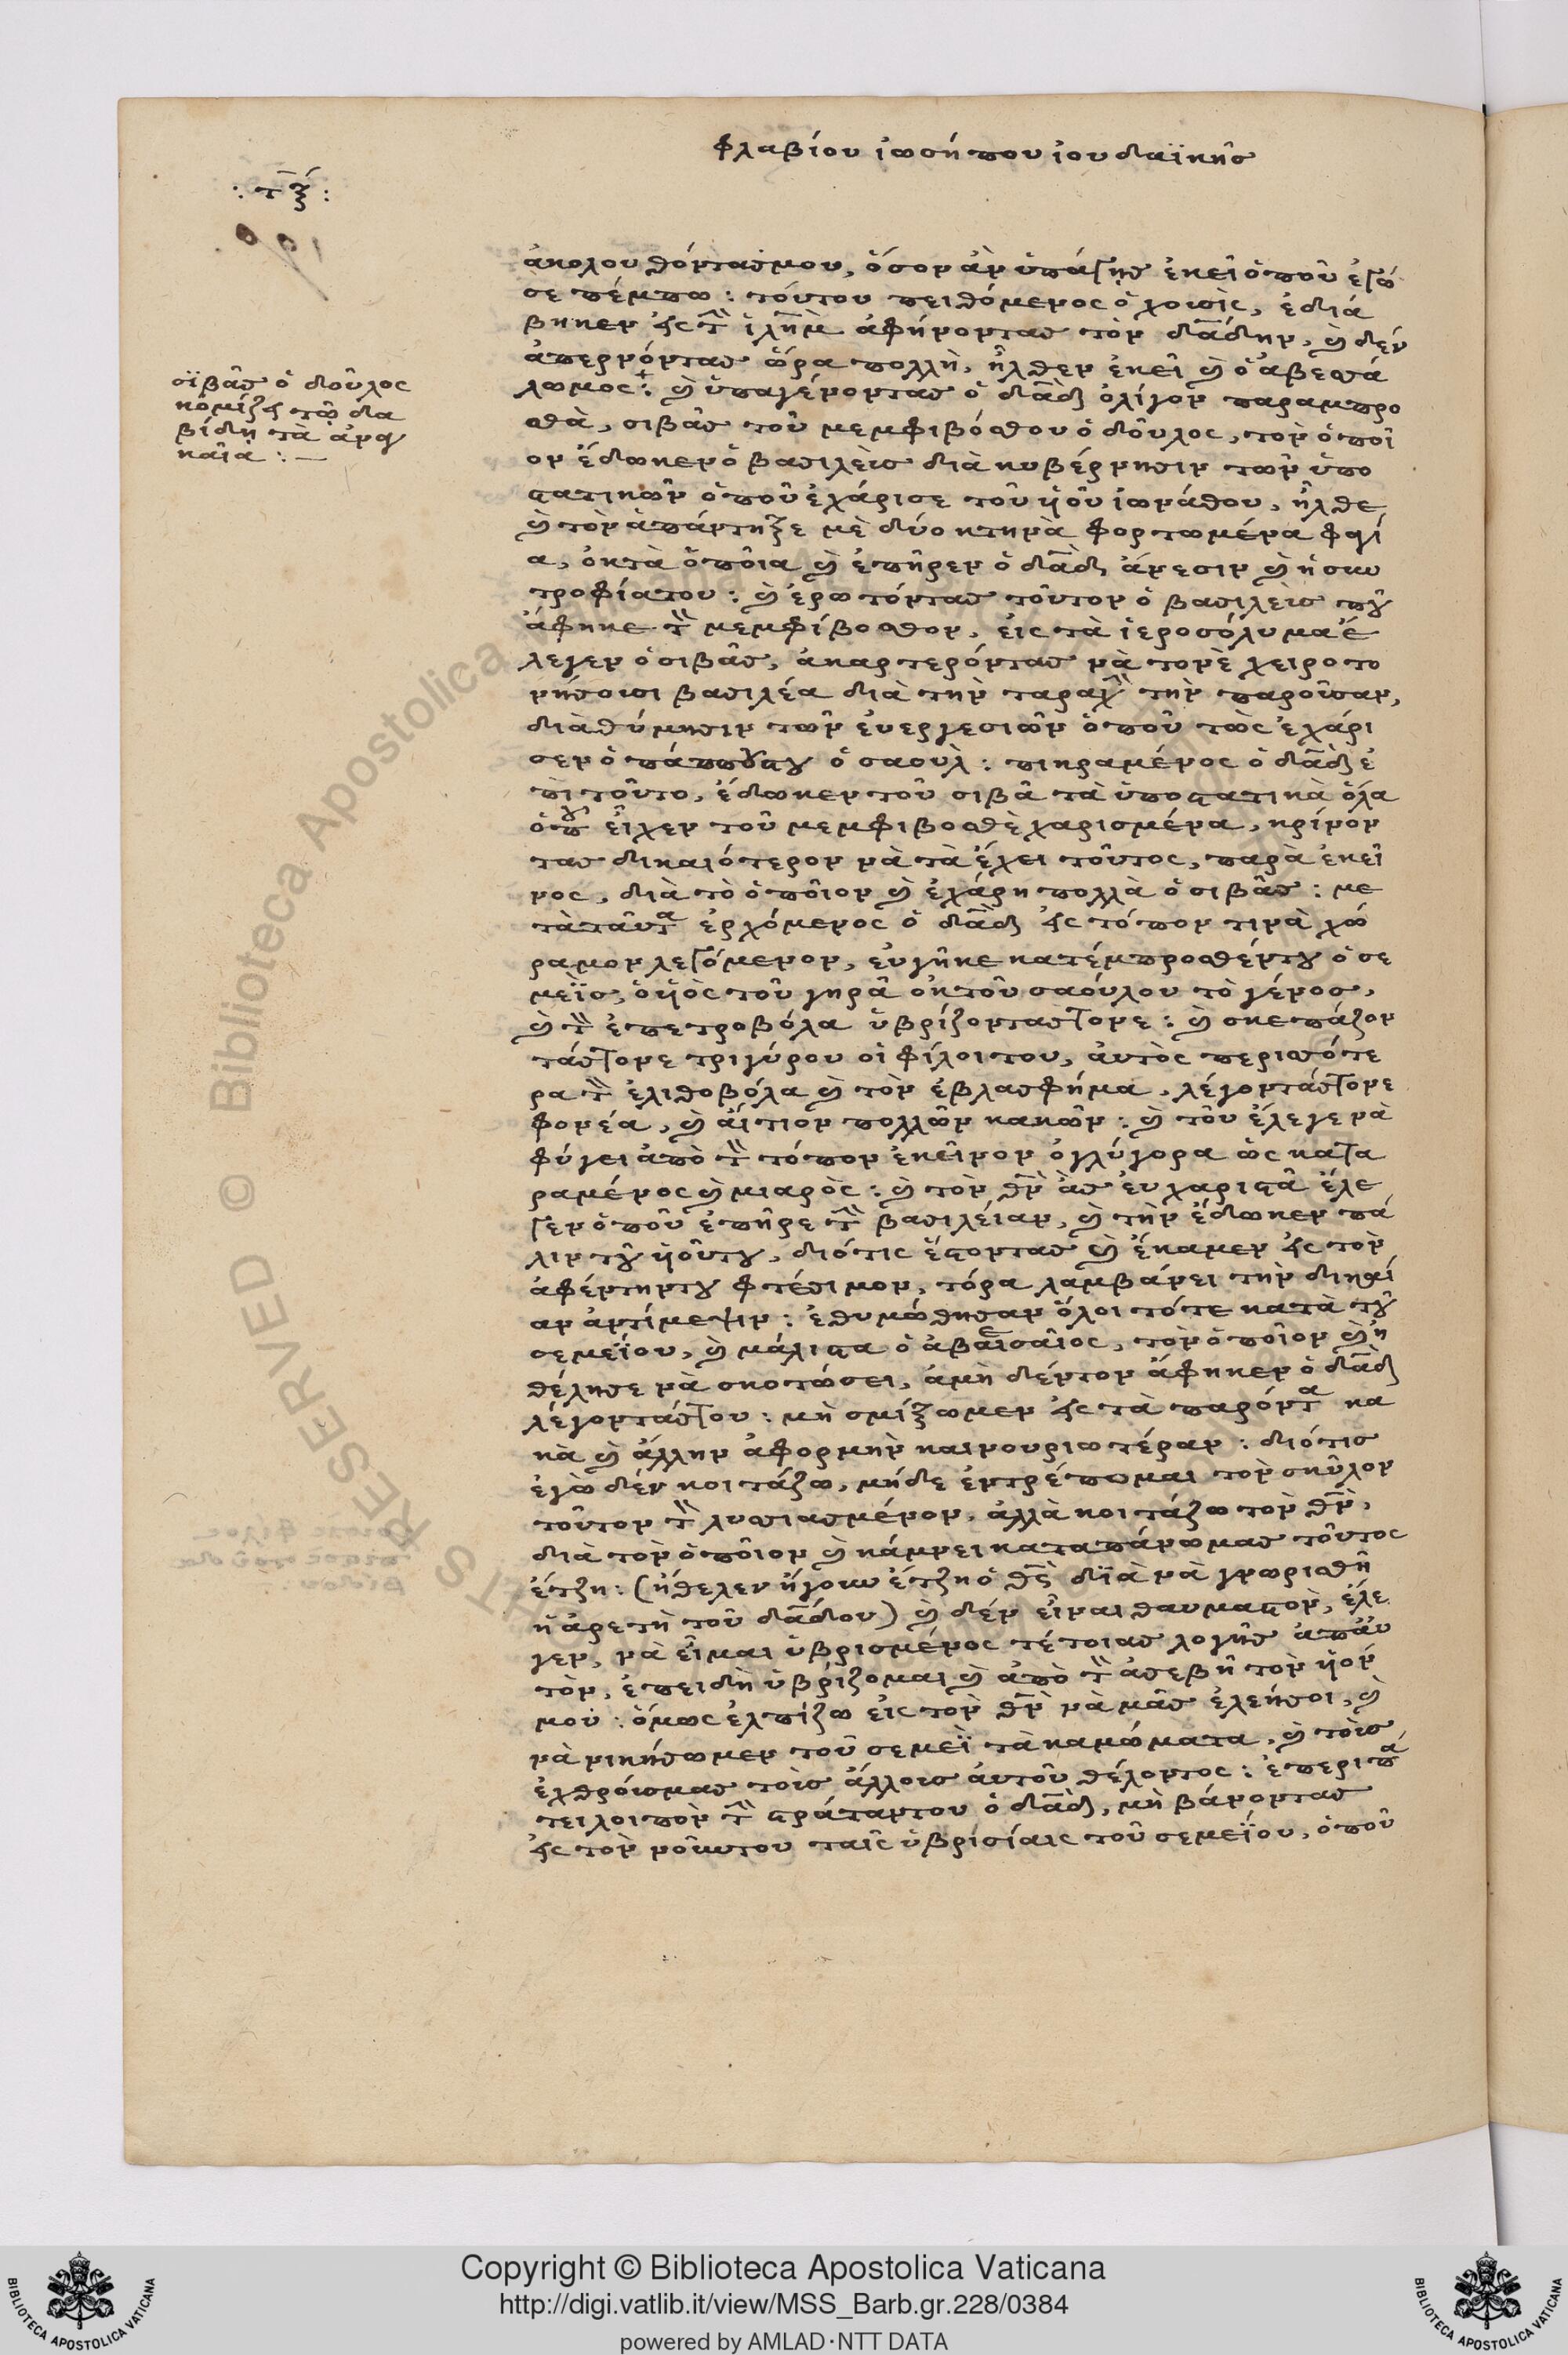 φλαβίου ἰωσήπου ἰουδαϊκῆς
: τξ :
ἀκολουθόντασμου, ὅσον ἂν ὑπάγῃς ἐκεῖ ὁποῦ ἐγώ
σε πέμπω : τούτου πειθόμενος ὁ χουσὶς, ἐδιά
βηκεν εἰς τὴν ἱλημ ἀφήνοντας τὸν δαδην, καὶ δέν
ἀπερνόντας ὥρα πολλὴ, ἦλθεν ἐκεῖ καὶ ὁ ἀβεσά
λωμος : καὶ ὑπαγένοντας ὁ δαδ ὀλίγον παραμπρο
σθὰ, σιβᾶς τοῦ μεμφιβόσθου ὁ δοῦλος, τὸν ὁποῖ
ον ἔδωκεν ὁ βασιλεὺς διὰ κυβέρνησιν τῶν ὑπο
στατικῶν ὁποῦ ἐχάρισε τοῦ ὑιοῦ ἰωνάθου, ἦλθε
καὶ τὸν ἀπάντηξε μὲ δύο κτηνὰ φορτωμένα ψωμί
α, ὀκτὰ ὁποῖα καὶ ἐπῆρεν ὁ δαδ ἄνεσιν καὶ ἡ συν
τροφίατου : καὶ ἐρωτόντας τοῦτον ὁ βασιλεὺς ποῦ
ἄφηκε τὸν μεμφίβοσθον, εἰς τὰ ἱεροσόλυμα ἔ
λεγεν ὁ σιβᾶς, ἀκαρτερόντας νὰ τονὲ χειροτο
νήσουσι βασιλέα διὰ τὴν ταραχὴν τὴν παροῦσαν,
διὰ θύμησιν τῶν ἐυεργεσιῶν ὁποῦ τῶς ἐχάρι
σεν ὁ πάππουςτου ὁ σαοὺλ : πικραμένος ὁ δαδ ἐ
πὶ τοῦτο, ἔδωκεν τοῦ σιβᾶ τὰ ὑποστατικὰ ὅλα
ὁποῦ εἶχεν τοῦ μεμφιβοσθὲ χαρισμένα, κρίνον
τας δικαιότερον νὰ τὰ ἔχει τοῦτος, παρὰ ἐκεῖ
νος, διὰ τὸ ὁποῖον καὶ ἐχάρη πολλὰ ὁ σιβᾶς : με
τὰ ταῦτα ἐρχόμενος ὁ δαδ εἰς τόπον τινὰ χώ
ραμον λεγόμενον, εὐγῆκε κατέμπροσθέντου ὁ σε
μεῒς, ὁ ὑιὸς τοῦ γηρᾶ ὀκ τοῦ σαούλου τὸ γένος,
καὶ τὸν ἐπετροβόλα ὑβρίζοντάςτονε : καὶ σκεπάζον
τάςτονε τριγύρου οἱ φίλοι του, ἀυτὸς περισσότε
ρα τὸν ἐλιθοβόλα καὶ τὸν ἐβλασφήμα, λέγοντάςτονε
φονέα, καὶ αἴτιον πολλῶν κακῶν : καὶ τοῦ ἔλεγε νὰ
φύγει ἀπὸ τὸν τόπον ἐκεῖνον ὀγλύγορα ὡς κατα
ραμένος καὶ μιαρὸς : καὶ τὸν θν ἂς ἐυχαριστᾶ ἔλε
γεν ὁποῦ ἐπῆρε τὴν βασιλείαν, καὶ τὴν ἔδωκεν πά
λιν τοῦ ὑιοῦτου, διότις ἔστοντας καὶ ἔκαμεν εἰς τὸν
ἀφέντηντου φτέσιμον, τόρα λαμβάνει τὴν δικαί
αν ἀντίμεψιν : ἐθυμώθησαν ὅλοι τότε κατὰ τοῦ
σεμεΐου, καὶ μάλιστα ὁ ἀβεσαῖος, τὸν ὁποῖον καὶ ἤ
θέλησε νὰ σκοτώσει, ἀμὴ δέντον ἄφηκεν ὁ δαδ
λέγοντάςτου : μὴ σμίξωμεν εἰς τὰ παρόντα κα
κὰ καὶ ἄλλην ἀφορμὴν καινουριωτέραν : διότις
ἐγὼ δέν κοιτάζω, μήδε ἐντρέπωμαι τὸν σκῦλον
τοῦτον τὸν λυσιασμένον, ἀλλὰ κοιτάζω τὸν θν,
διὰ τὸν ὁποῖον καὶ κάμνει καταπάνωμας τοῦτος
ἔτζη : (ἤθελεν ἤγουν ἔτζη ὁ θς διὰ νὰ γνωρισθῆ
ἡ ἀρετὴ τοῦ δαδου) καὶ δέν εἶναι θαυμαστὸν, ἔλε
γεν, νὰ εἶμαι ὑβρισμένος τέτοιας λογῆς ἀπ' ἀυ
τὸν, ἐπειδὴ ὑβρίζομαι καὶ ἀπὸ τὸν ἀσεβῆ τὸν ὑιόν
μου : ὅμως ἐλπίζω εἰς τὸν θν νὰ μᾶς ἐλεήσοι, καὶ
νὰ νικήσωμεν τοῦ σεμεῒ τὰ καμώματα, καὶ τοὺς
ἐχθρούσμας τοὺς ἄλλους ἀυτοῦ θέλοντος : ἐπεριπά
τει λοιπὸν τὴν στράταντου ὁ δαδ, μὴ βάνοντας
εἰς τὸν νοῦντου ταῖς ὑβρισίαις τοῦ σεμεΐου, ὁποῦ
σϊβᾶς ὁ δοῦλος
κομίζει τῶ δα
βίδη τὰ ἀναγ
καῖα : —
© Biblioteca Apostolica Vaticana
RIGHTS RESERVED
Copyright © Biblioteca Apostolica Vaticana
http://digi.vatlib.it/view/MSS_Barb.gr.228/0384
powered by AMLAD·NTT DATA
BIBLIOTECA APOSTOLICA VATICANA
BIBLIOTECA APOSTOLICA VATICANA